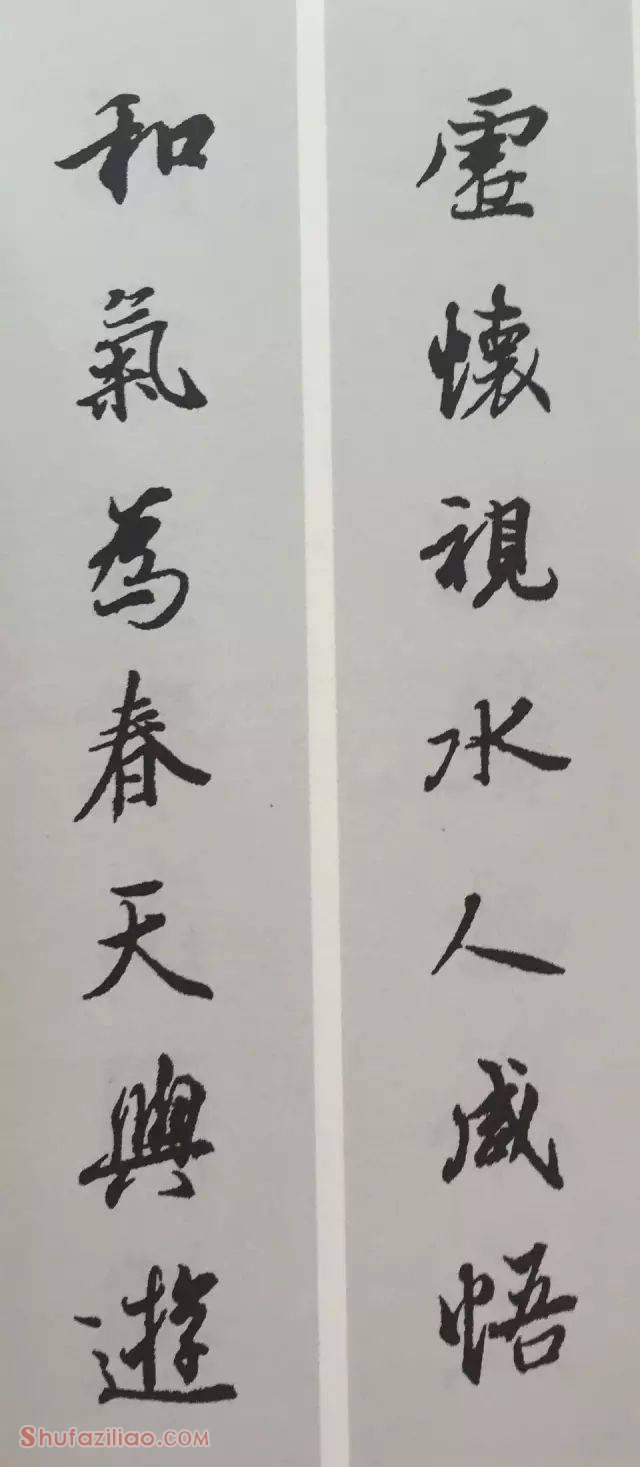 虛懷視水人咸悟
和氣為春天與遊
Shufaziliao.COM